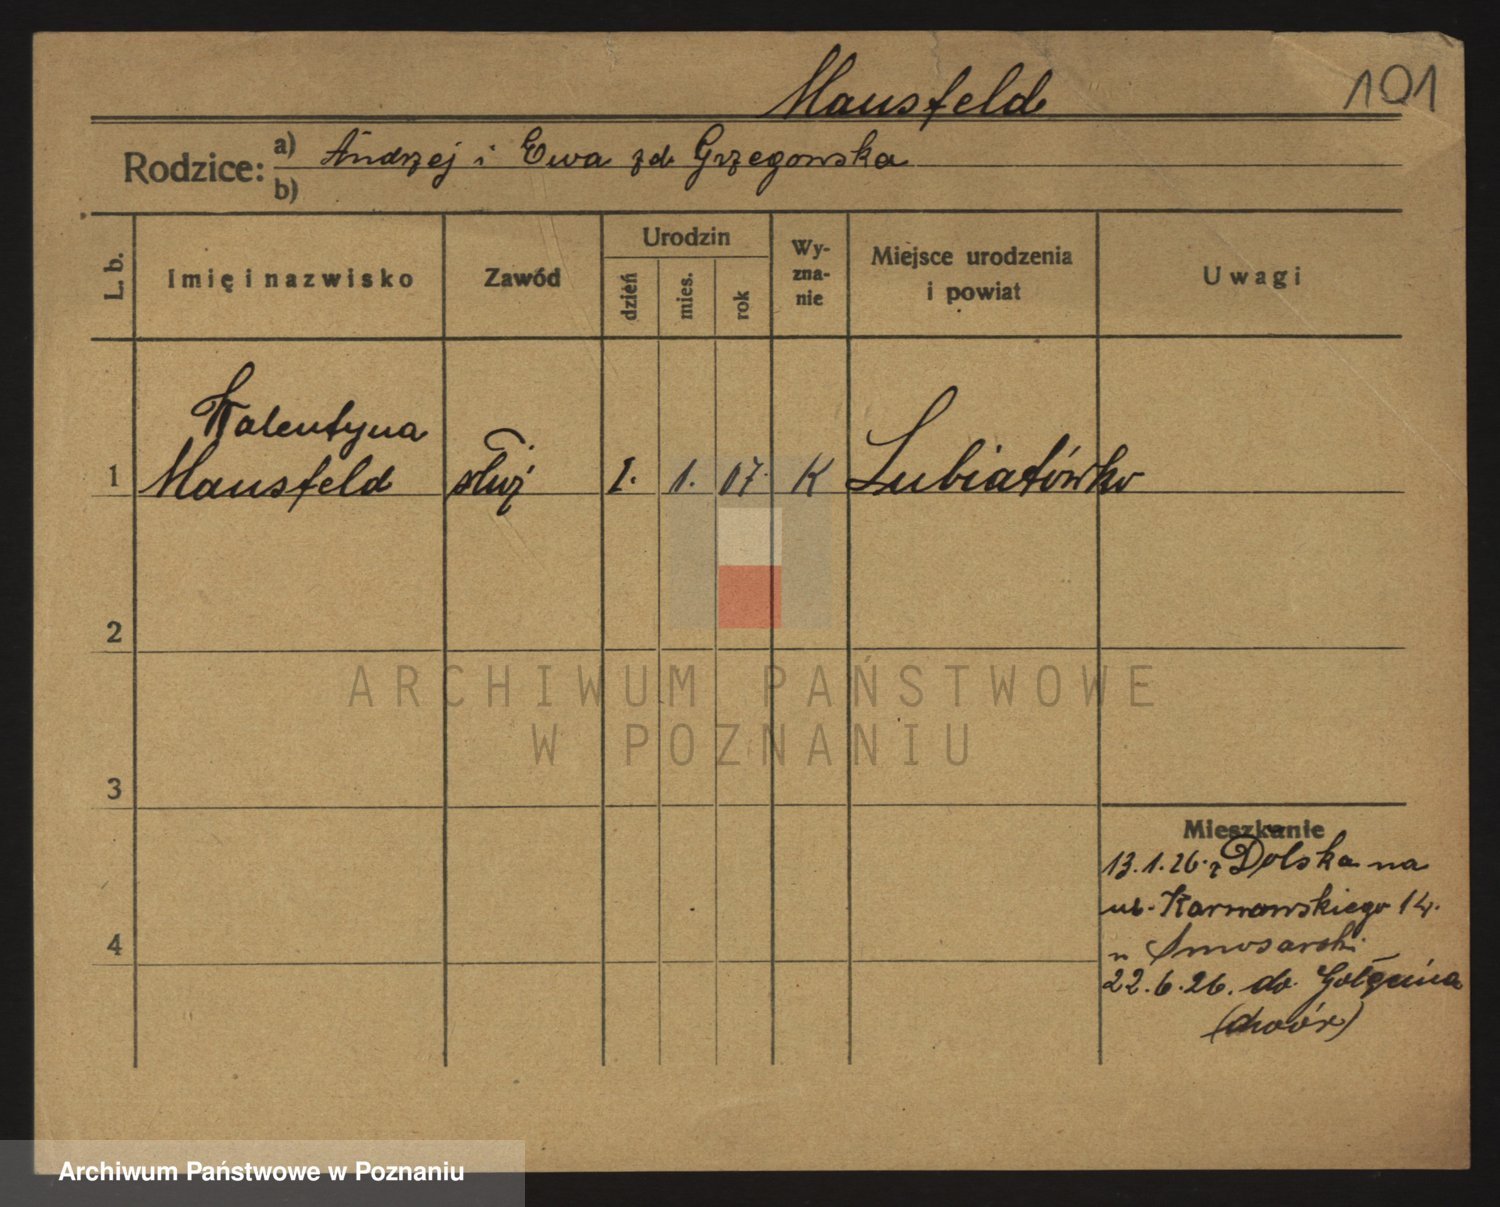 Mansfeld 101
Rodzice: a) Andrzej i Ewa zd. Grzegowska
b)
L. b.
Imię i nazwisko
Zawód
Urodzin
dzień
mies.
rok
Wy-
zna-
nie
Miejsce urodzenia
i powiat
Uwagi
Walentyna
1 Mansfeld służ 1. 1. 07. K Lubiatówko
2
3
4
Mieszkanie
13.1.26. z Dolska na
ul. Karwowskiego 14.
u Smosarski
22.6.26. do Golęcina
(dwór)
ARCHIWUM PAŃSTWOWE
W POZNANIU
Archiwum Państwowe w Poznaniu